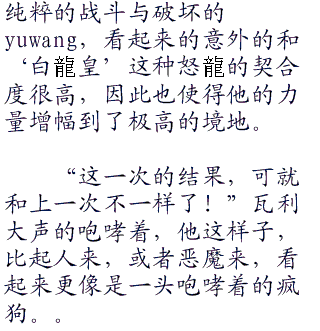 纯粹的战斗与破坏的
yuwang，看起来的意外的和
‘白龍皇’这种怒龍的契合
度很高，因此也使得他的力
量增幅到了极高的境地。
“这一次的结果，可就
和上一次不一样了！”瓦利
大声的咆哮着，他这样子，
比起人来，或者恶魔来，看
起来更像是一头咆哮着的疯
狗。。